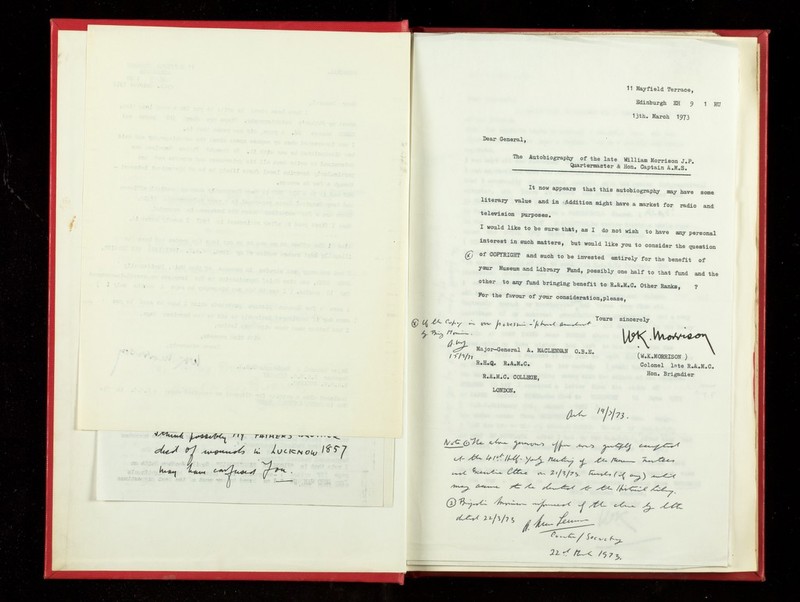 think possibly my FATHERS
died of wounds in LUCKNOW 1857
may have confused you.
11 Mayfield Terrace,
Edinburgh EH 9 1 RU
13th. March 1973
Dear General,
The Autobiography of the late William Morrison J.P.
Quartermaster & Hon. Captain A.M.S.
It now appears that this autobiography may have some
literary value and in Addition might have a market for radio and
television purposes.
I would like to be sure that, as I do not wish to have any personal
interest in such matters, but would like you to consider the question
of COPYRIGHT and such to be invested entirely for the benefit of
your Museum and Library Fund, possibly one half to that fund and the
other to any fund bringing benefit to R.A.M.C. Other Ranks, ?
For the favour of your consideration, please,
Yours sincerely
W.K. Morrison
(W.K.MORRISON )
Colonel late R.A.M.C.
Hon. Brigadier
Major-General A. MACLENNAN O.B.E.
R.H.Q. R.A.M.C.
R.A.M.C. COLLEGE,
LONDON.
19/3/73.
Note ① The above generous offer was gratefully accepted
at the 101st Half-Yearly Meeting of the Museum Trustees
and Executive Cttee on 21/3/73
may to be devoted to the Historical Library.
② Brigadier Morrison informed of the above by letter
dated 22/3/73
A. MacLennan
Curator/Secretary
22nd March 1973.